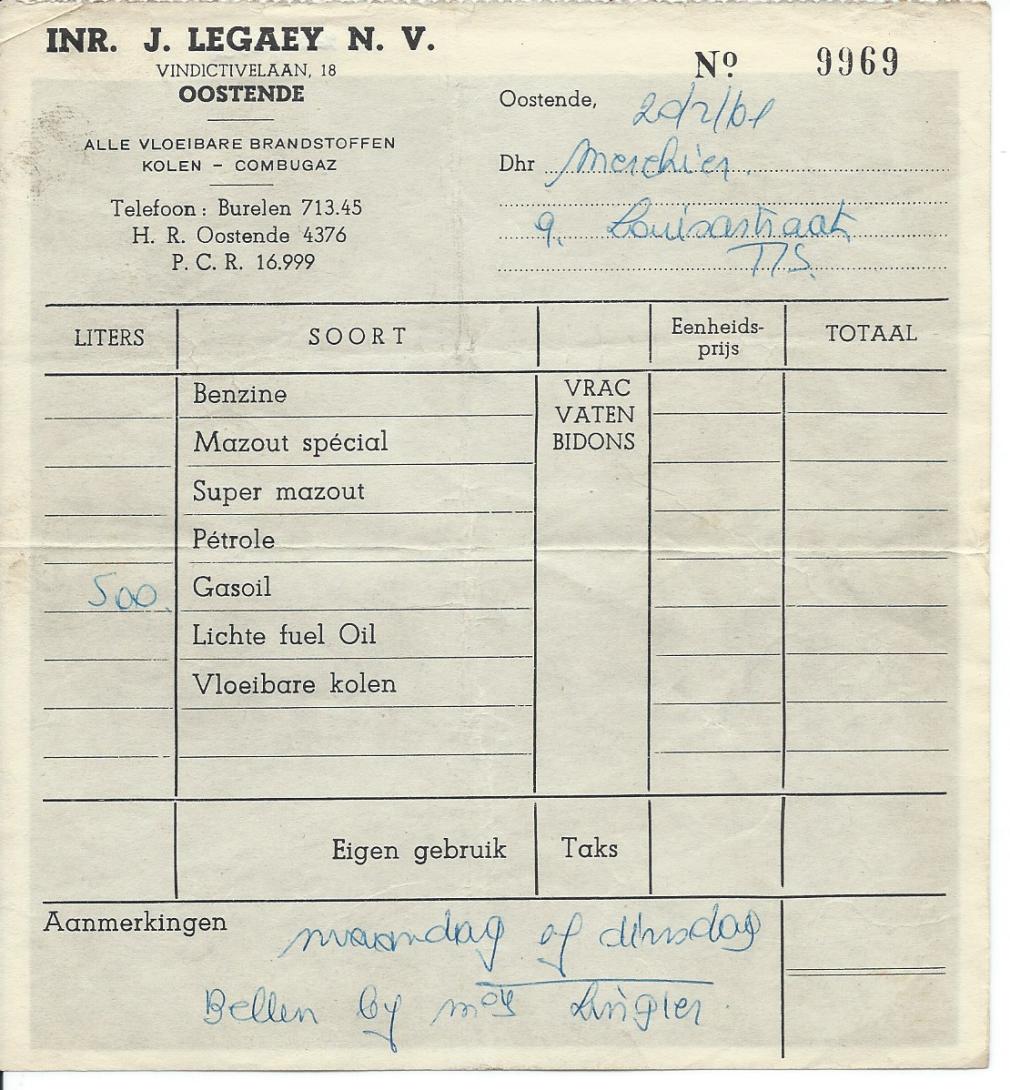 INR. J. LEGAEY N. V.
VINDICTIVELAAN, 18
OOSTENDE
ALLE VLOEIBARE BRANDSTOFFEN
KOLEN - COMBUGAZ
Telefoon : Burelen 713.45
H. R. Oostende 4376
P. C. R. 16.999
Nº 9969
Oostende,
Dhr Merchier.
9. Louisastraat
T/S.
LITERS SOORT Eenheids-
prijs TOTAAL
Benzine VRAC
VATEN
Mazout spécial BIDONS
Super mazout
Pétrole
500. Gasoil
Lichte fuel Oil
Vloeibare kolen
Eigen gebruik Taks
Aanmerkingen
maandag of dinsdag
Bellen by Lingier.